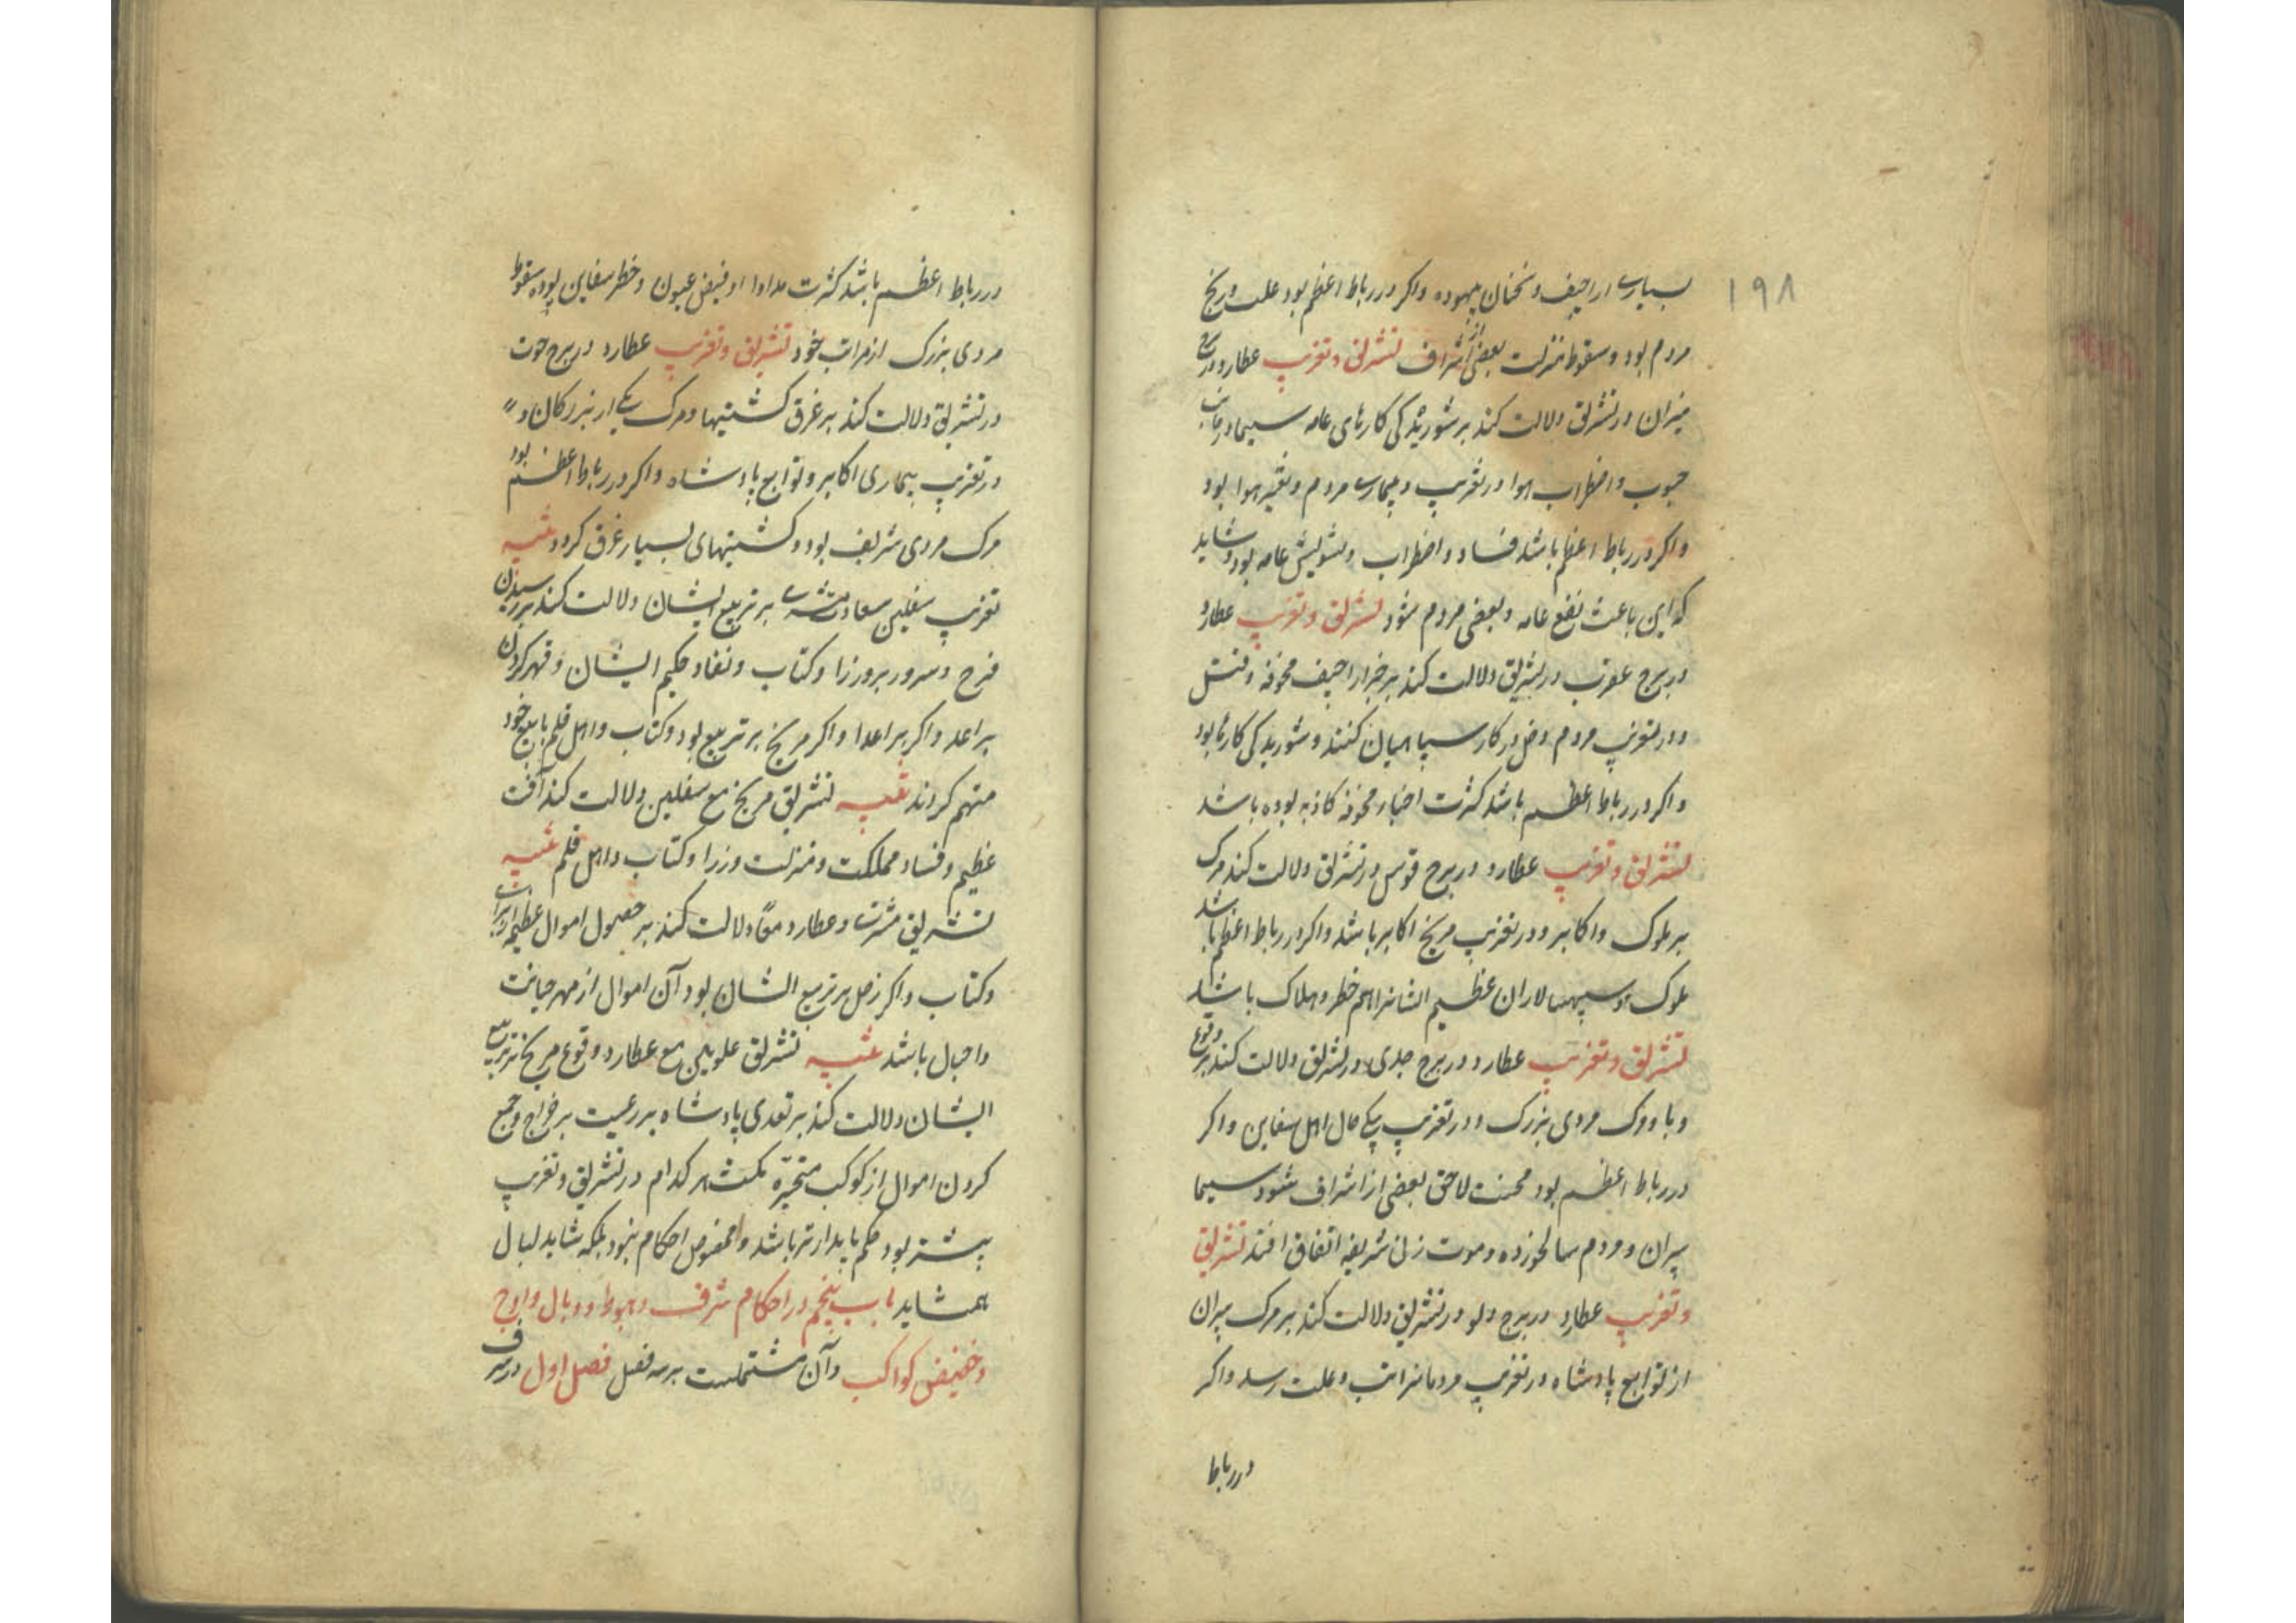 ۱۹۸
بسیاری اراجیف و سخنان بیهوده واکر در رباط اعظم بود علت و رنج
مردم بود و سقوط منزلت بعضی از اشراف تشریق و تغریب عطارد در برج
میزان در تشریق دلالت کند بر شوریدکی کارهای عامه سیما در باب
حبوب و اضطراب هوا و در تغریب و بیماری مردم و تغیر هوا بود
واکر در رباط اعظم باشد فساد و اضطراب و تشویش عامه بود و شاید
که این باعث نفع عامه و بعضی مردم شود تشریق و تغریب عطارد
در برج عقرب در تشریق دلالت کند بر خبر اراجیف مخوفه و فتنش
و در تغریب مردم دخل در کار سپاهیان کنند و شوریدکی کارها بود
واکر در رباط اعظم باشد کثرت اخبار مخوفه کاذبه بوده باشد
تشریق و تغریب عطارد در برج قوس در تشریق دلالت کند مرک
بر ملوک و اکابر و در تغریب مریخ اکابر باشد واکر در رباط اعظم باشد
ملوک و سپهسالاران عظیم الشانرا هم خطر و هلاک باشد
تشریق و تغریب عطارد در برج جدی در تشریق دلالت کند بر وقوع
وبا و وک مردی بزرک و در تغریب حال اهل سفاین واکر
در رباط اعظم بود محنت لاحق بعضی از اشراف شود سیما
پیران و مردم سالخورده و موت زنی شریفه اتفاق افتد تشریق
و تغریب عطارد در برج دلو در تشریق دلالت کند بر مرک پیران
از توابع پادشاه و در تغریب مردمانرا تب و علت رسد واکر
در رباط
در رباط اعظم باشد کثرت مداوا و فیض عیون و خطر سفاین بوده سقوط
مردی بزرک از مراتب خود تشریق و تغریب عطارد در برج حوت
در تشریق دلالت کند بر غرق کشتیها و مرک یکی از بزرکان و
در تغریب بیماری اکابر و توابع پادشاه واکر در رباط اعظم بود
مرک مردی شریف بود و کشتیهای بسیار غرق کردد تنبیه
تغریب سفلیین مشتری بر تربیع ایشان دلالت کند بر رسیدن
فرح و سرور بر وزرا و کتاب و نفاد حکم ایشان و قهر کردن
بر اعدا واکر بر اعدا واکر مریخ بر تربیع بود و کتاب و اهل قلم خود
متهم کردند تنبیه تشریق مریخ مع سفلیین دلالت کند آفت
عظیم و فساد مملکت و منزلت وزرا و کتاب و اهل قلم تنبیه
تشریق مشتری و عطارد معا دلالت کند بر حصول اموال عظیم
و کتاب واکر زحل بر تربیع ایشان بود آن اموال از مهر خیانت
و احیال باشد تنبیه تشریق علویین مع عطارد و وقوع مریخ بر تربیع
ایشان دلالت کند بر تعدی پادشاه بر رعیت بر خراج و جمع
کردن اموال از کوکب متحیره مکث هر کدام در تشریق و تغریب
بیشتر بود حکم پایدارتر باشد و مخصوص احکام نبود بلکه شاید بسال
همشاید باب پنجم در احکام شرف و هبوط و وبال و اوج
و حضیض کواکب و آن مشتملست بر سه فصل فصل اول در شرف